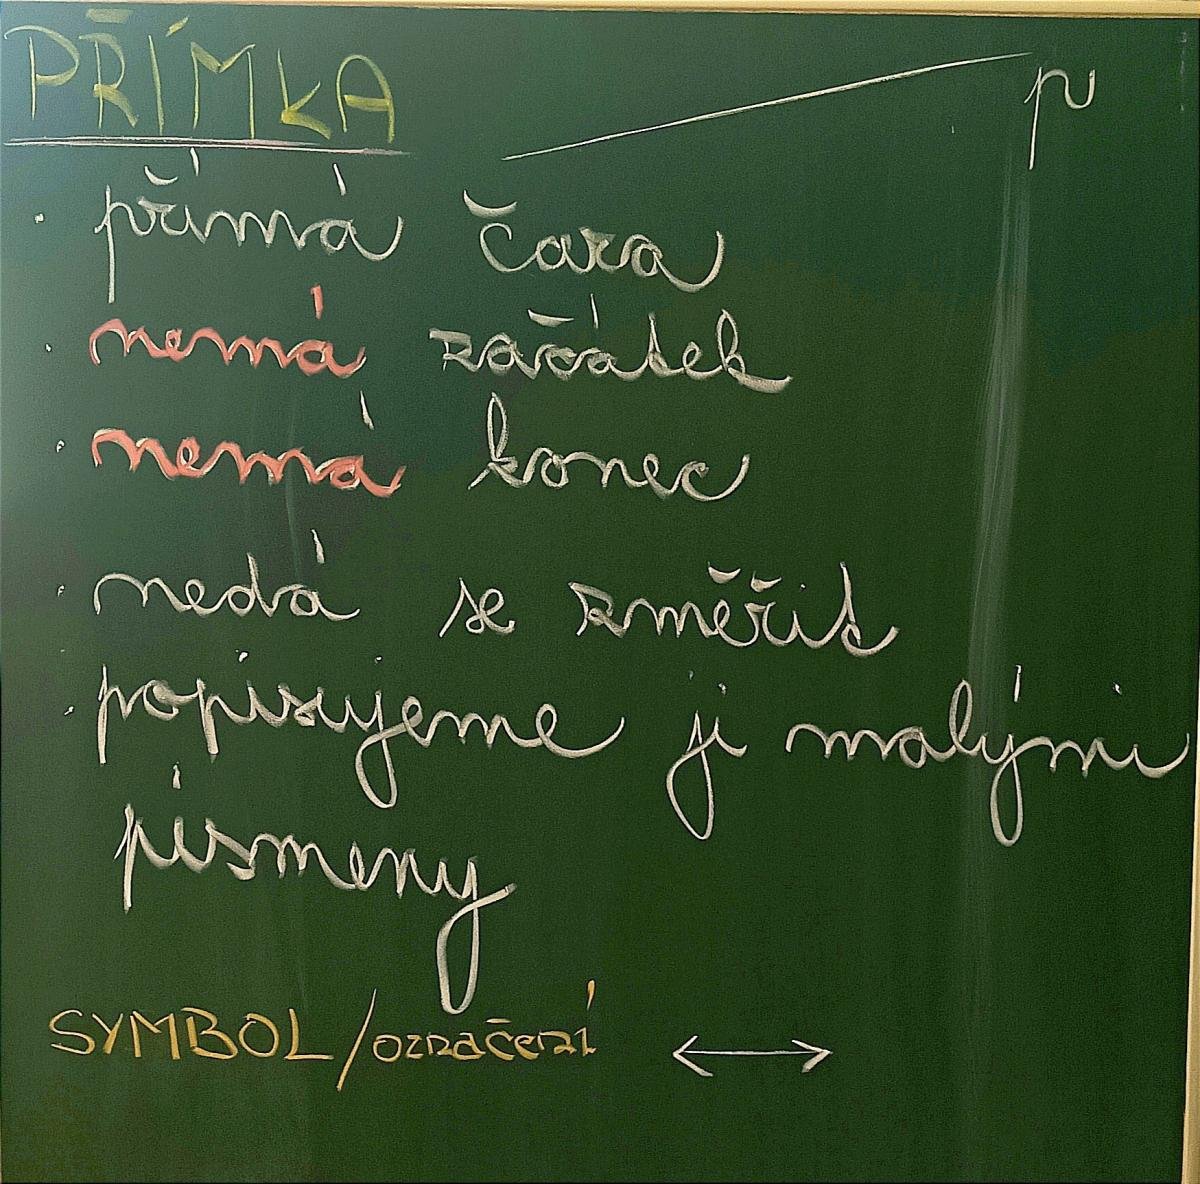 PŘÍMKA
p
· přímá čára
· nemá začátek
· nemá konec
· nedá se změřit
· popisujeme ji malými
písmeny
SYMBOL/označení ↔